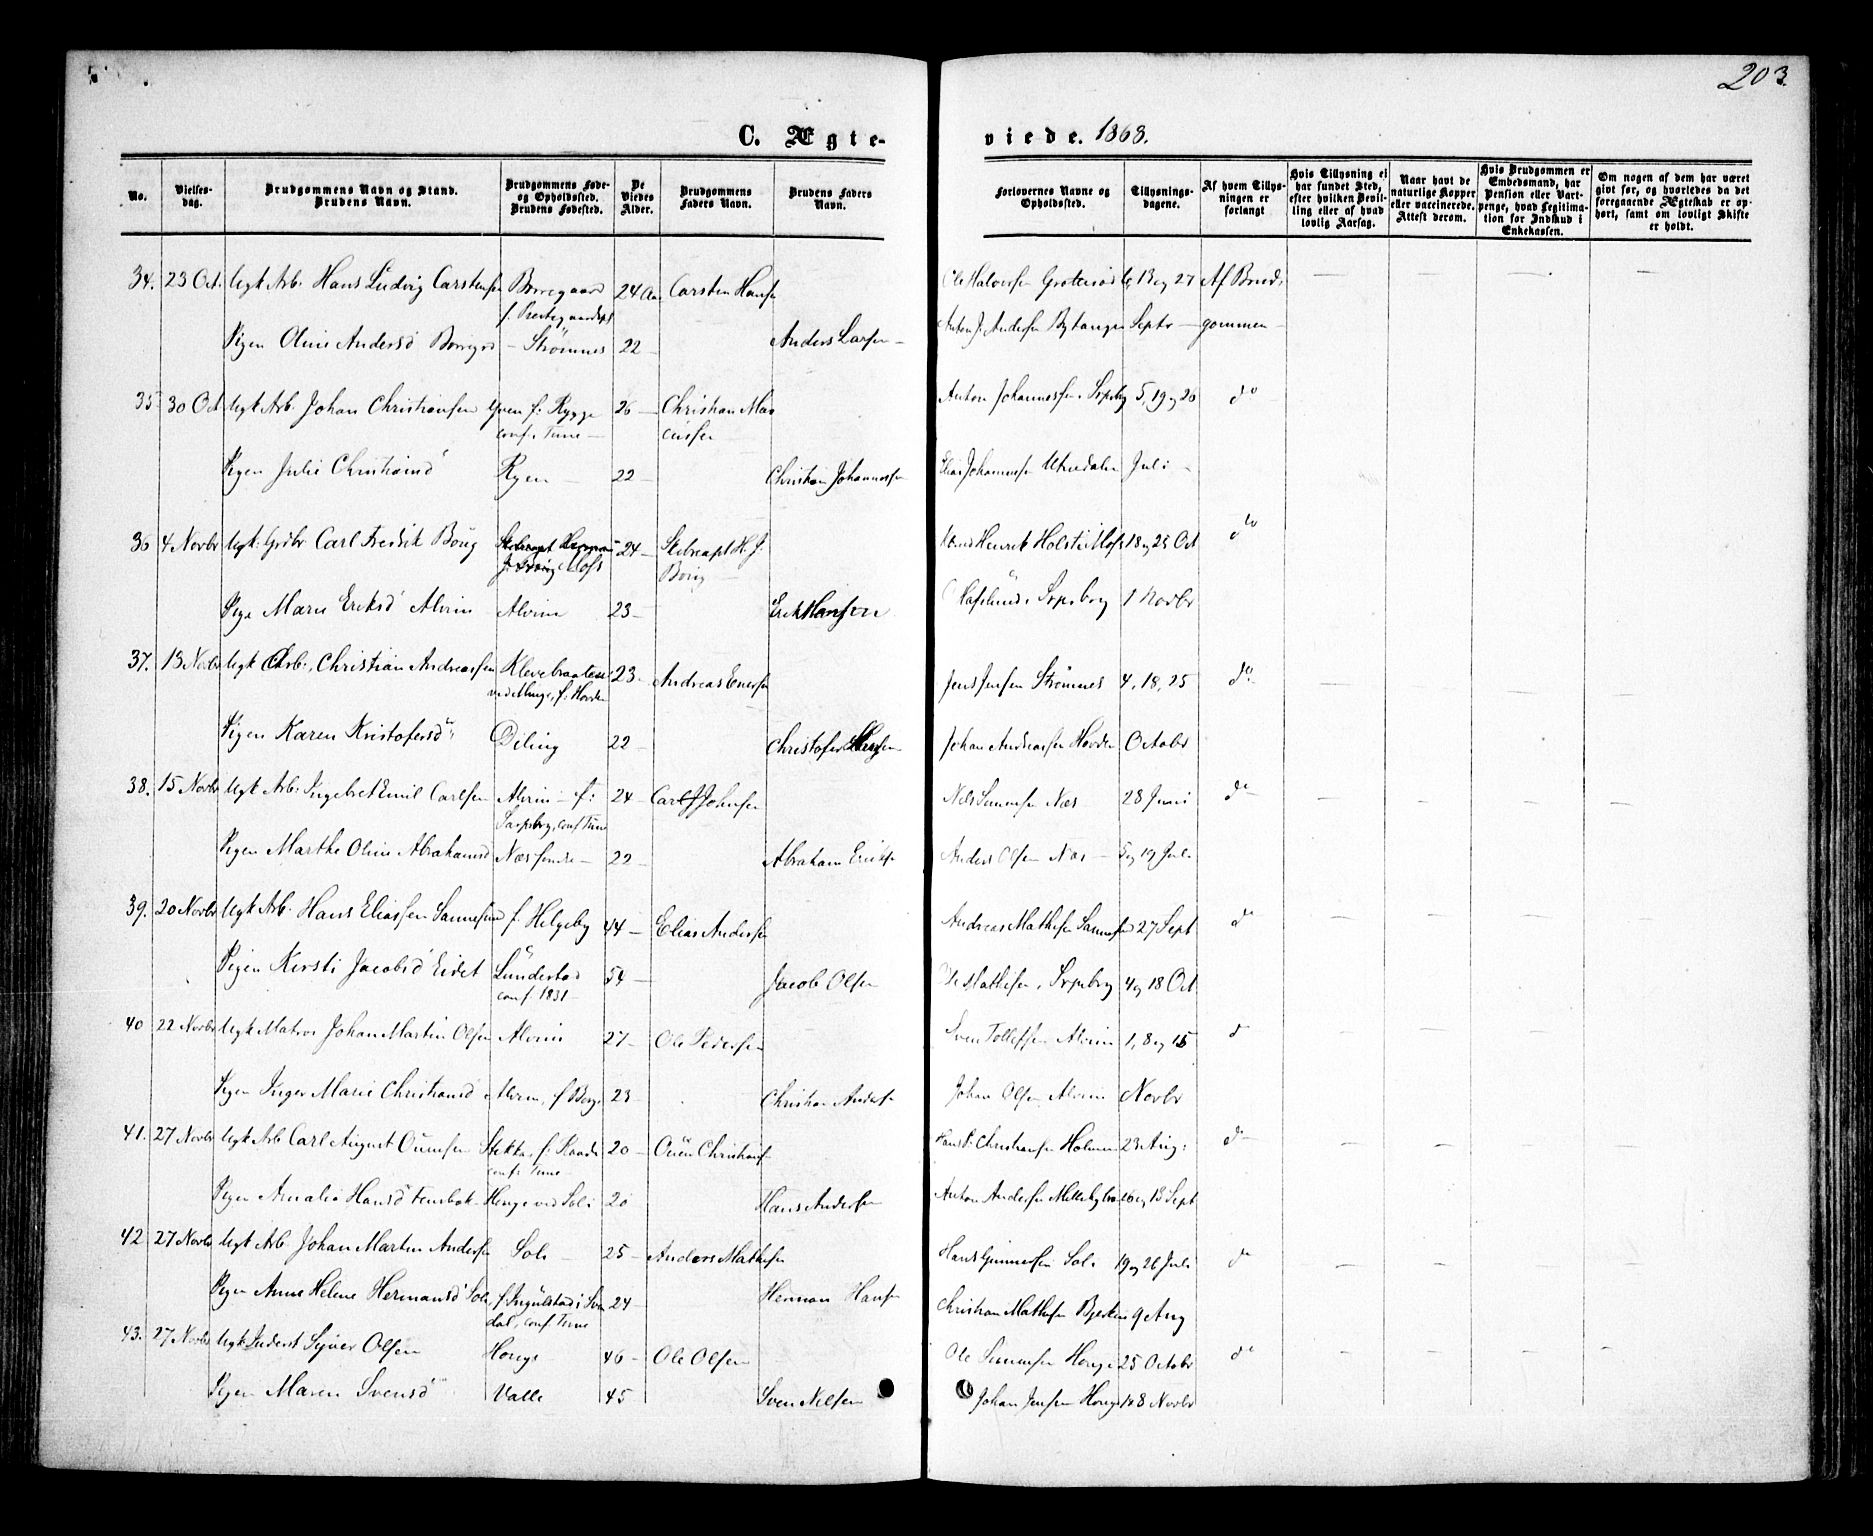 203.
C. Ægte-
viede. 1868.
No.
Vielses-dag.
Brudgommens Navn og Stand. Brudens Navn.
Brudgommens Føde- og Opholdssted. Brudens Fødested.
De Viedes Alder.
Brudgommens Faders Navn.
Brudens Faders Navn.
Forlovernes Navne og Opholdssted.
Tillysnings-dagene.
Af hvem Tillys-ningen er forlangt
Hvis Tillysning ei har fundet Sted, efter hvilken Bevil-ling eller af hvad lovlig Aarsag.
Naar havt de naturlige Kopper eller vaccinerede. Attest derom.
Hvis Brudgommen er Embedsmand, har Pension eller Vart-penge, hvad Legitima-tion for Indskud i Enkekassen.
Om nogen af dem har været givt før, og hvorledes da det foregaaende Ægteskab er op-hørt, samt om lovligt Skifte er holdt.
34. 23 Oct. Ugk Arb. Hans Ludvig Carstensen Borregaard 24 Aar Carsten Hansen Ole Halvorsen 6, 13 og 27 Af Brud-
f. Prestegaards
Pigen Oline Andersd Borregrd - Strömnes 22 - Anders Larsen - Anton J. Andersen Bytangen Septr - gommen -
35 30 Oct Ugk Arb. Johan Christiansen Yven f. Rygge 26 - Christian Mar Anton Johannessen, Srpsbg 5, 19 og 26 do
conf. Tune - cussen
Pigen Julie Christiansd Ryen - 22 - Christian Johannessen Elias Johannessen Utnedalen Juli -
36 4 Novbr Ugk. Grdbr Carl Fredrik Boug 24 - Skibscapt H. J. Henrik Holst i Mos 18 og 25 Oct do
Boug -
Pige Maren Eriksd Alvim - Alvim 23 - Erik Hansen Hafslund, Srpsborg 1 Novbr
37. 13 Novbr Ugk Arb., Christian Andreassen Klevebraaten 23 - Andreas Enersen Jens Jensen Strömnes 4, 18, 25 do
ved Minge, f. Hovden
Pigen Karen Kristofersd Deling 22 - Christofer Hansen Johan Andreassen Hovden Octobr
38. 15 Novbr Ugk Arb. Ingebret Emil Carlsen Alvim - f: 24 - Carl J Johnsen Nils Simensen Næs 28 Juni do
Sarpsborg, conf Tune
Pigen Marthe Oline Abrahamsd Næs söndre - 22 - Abraham Eriksen Anders Olsen Næs - 5 og 19 Juli
39. 20 Novbr Ugk Arb. Hans Eliassen Sannesund f. Helgeby 44 - Elias Andersen Andreas Mathisen Sannesund 27 Sept do
Pigen Kirsti Jacobsd Eidet Lundestad 54 - Jacob Olsen Mathisen, Srpsborg 4 og 18 Oct
conf. 1831 -
40 22 Novbr Ugk Matros Johan Martin Olsen Alvim 27 - Ole Pedersen Sven Tollefsen Alvim 1, 8 og 15 do
Pigen Inger Marie Christiansd Alvim, f Borge 23 - Christian Andersen Johan Olsen Alvim Novbr
41. 27 Novbr Ugk Arb Carl August Ouensen Stikka, f. Raade 20 - Ouen Christiansen Hans P. Christiansen Holmen 23 Aug: do
conf: Tune -
Pigen Amalia Hansd Tenbok Hauge ved Soli 20 Hans Andersen Anton Andersen 6 og 13 Sept
42 27 Novbr Ugk Arb. Johan Martin Andersen Soli - 25 - Anders Mathisen Hans Gunnersen Soli 19 og 26 Juli do
Pigen Anne Helene Hermansd Soli, f. Ingulstad i Sön 24 - Herman Hansen Christian Mathisen Bjerken 9 Aug
dal, conf Tune
43. 27 Novbr Ugk Inderst Syver Olsen Hauge 46 - Ole Olsen Ole Simensen Hauge 25 Octobr do
Pigen Maren Svensd Valle 45 - Sven Nilsen Johan Jensen Hauge 1 & 8 Novbr